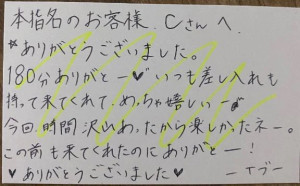 本指名のお客様、Cさんへ
*ありがとうございました。
180分ありがとー♥いつも差し入れも
持って来てくれて、めっちゃ嬉しいー
今回時間沢山あったから楽しかったネー。
この前も来てくれたのにありがとー!
♥ありがとうございました♥ ーイブー